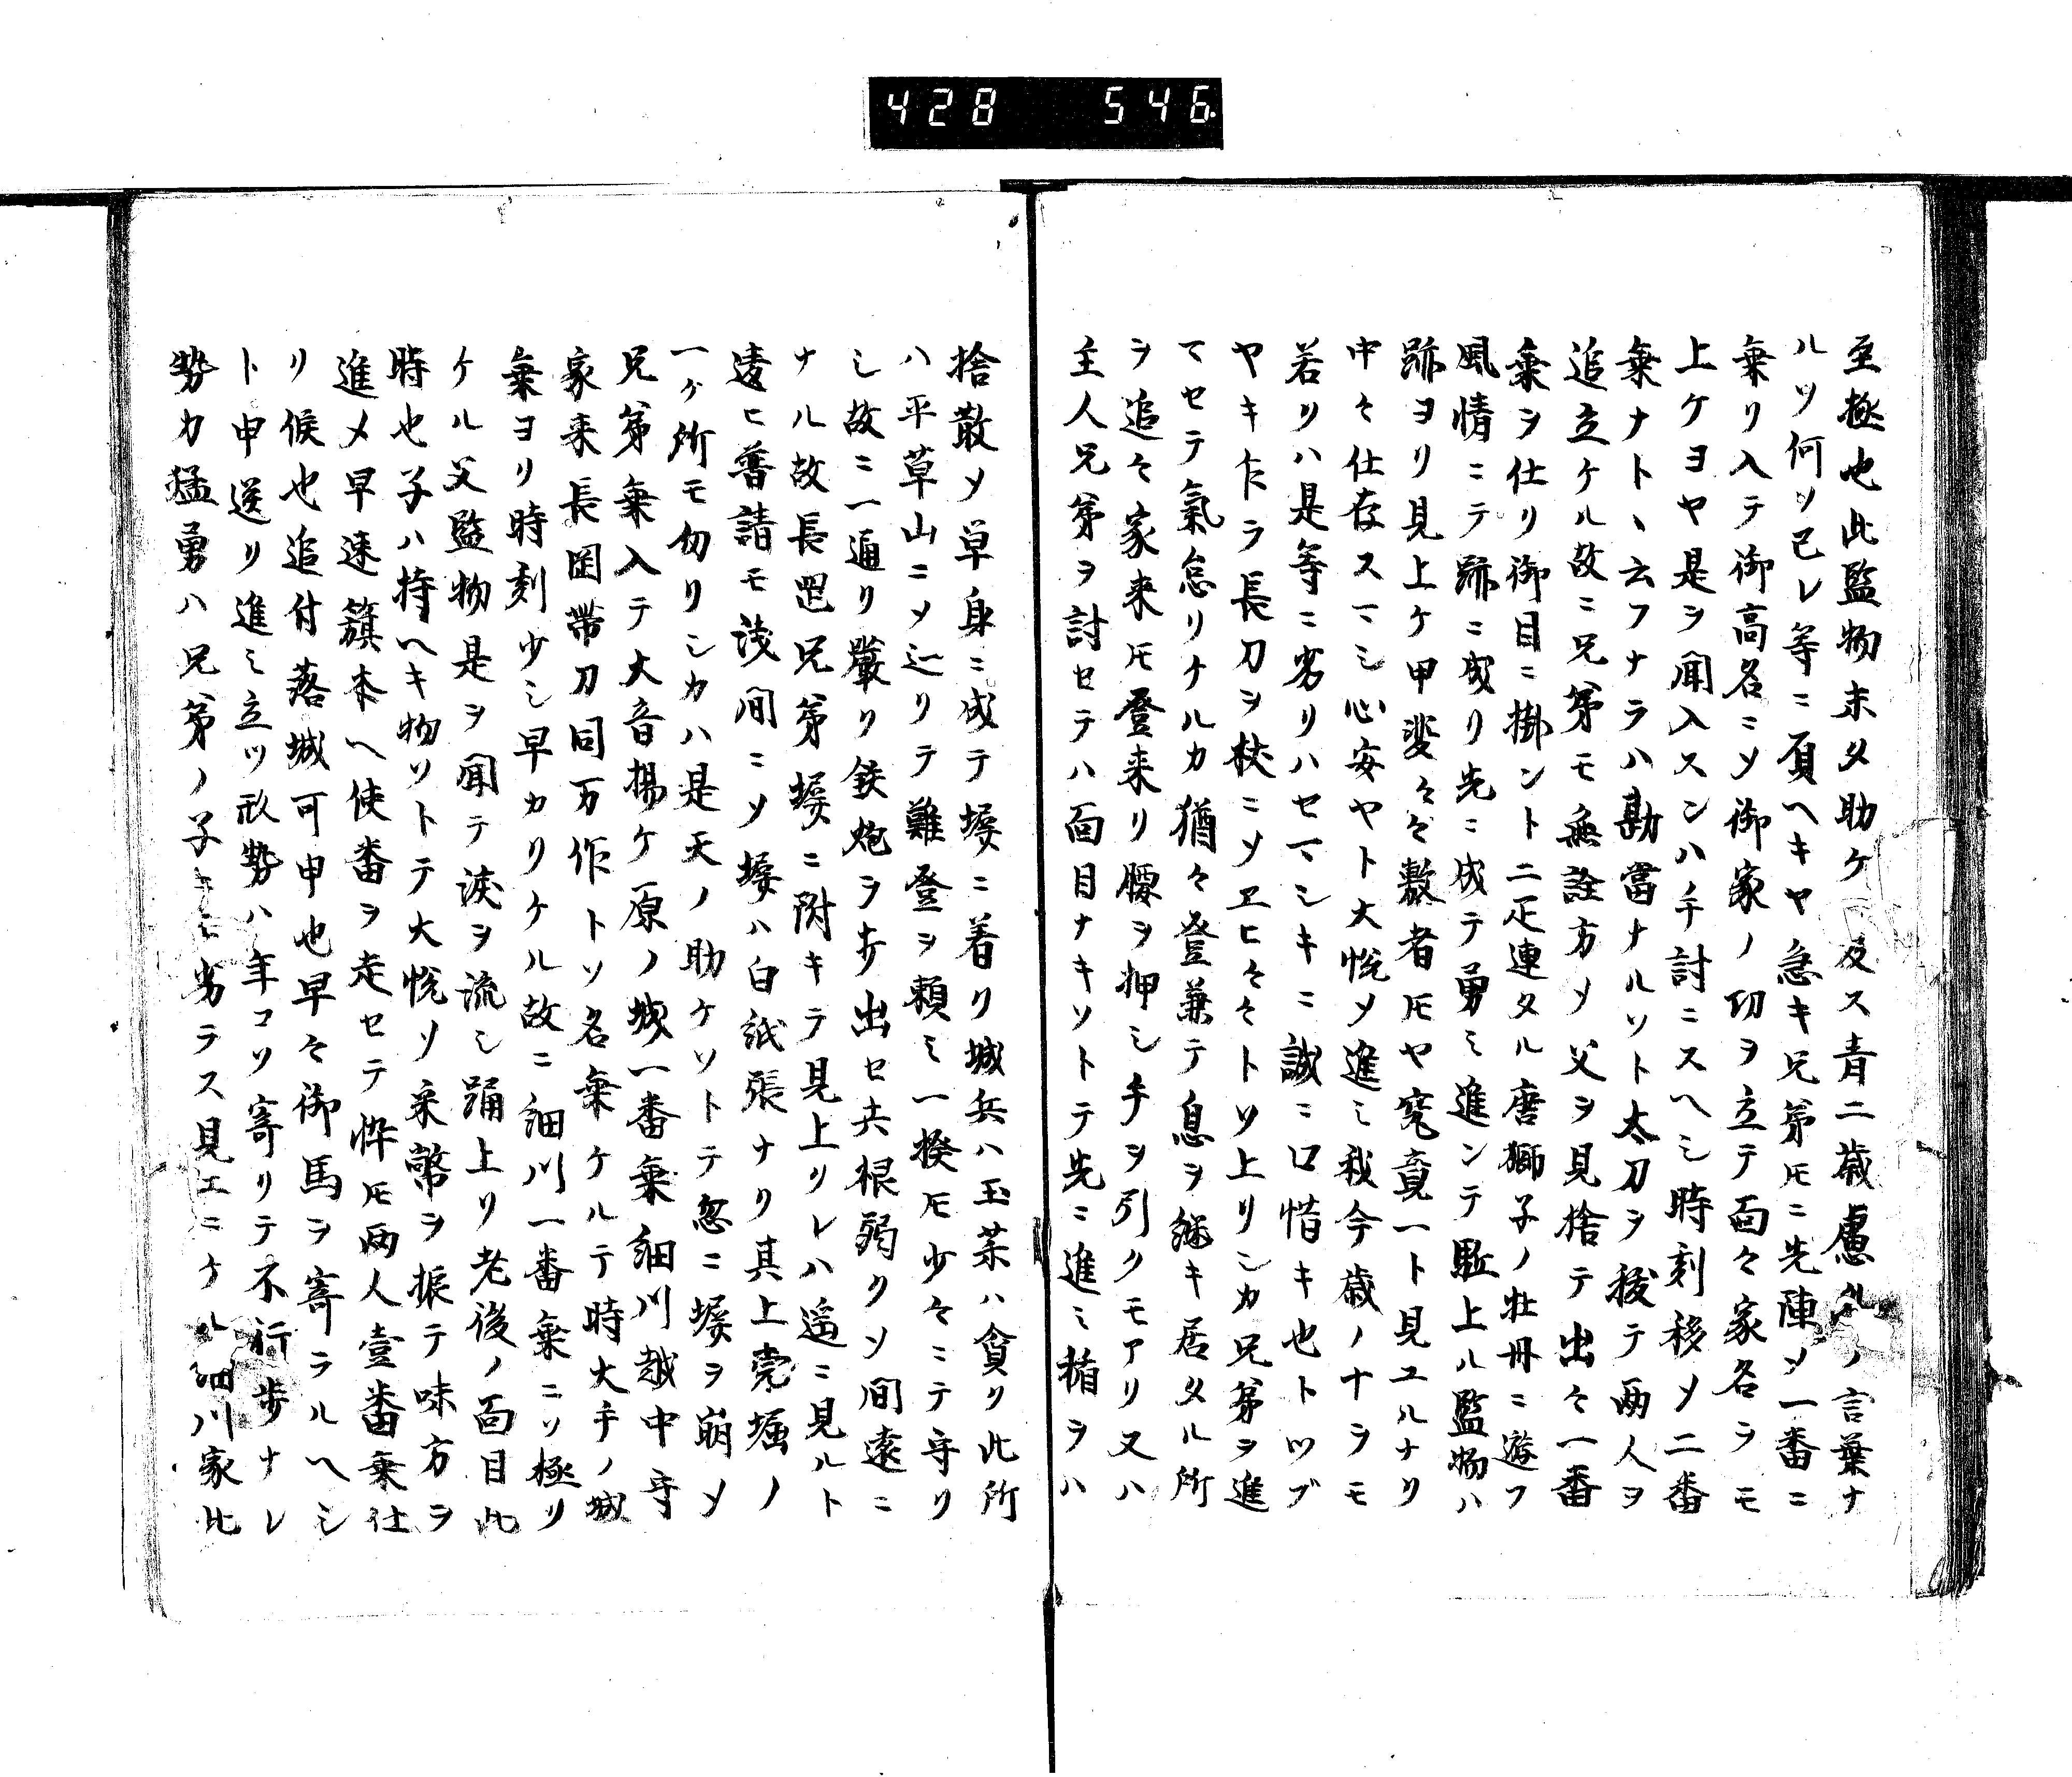 428 546
至極也此監物未タ助ケニ及ス青二歳慮外ノ言葉ナ
ルソ何ソ己レ等ニ負ヘキヤ急キ兄弟𪜈ニ先陣シ一番ニ
乗リ入テ御高名ニメ御家ノ功ヲ立テ面々家名ラモ
上ケヨヤ是ヲ聞入スンハ手討ニスヘシ時刻移メ二番
乗ナトヽ云フナラハ勘當ナルソト太刀ヲ抜テ両人ヲ
追立ケル故ニ兄弟モ無詮方メ父ヲ見捨テ出々一番
乗ヲ仕リ御目ニ掛ント二疋連タル唐獅子ノ牡丹ニ遊フ
風情ニテ跡ニ成リ先ニ成テ勇ミ進ンテ駈上ル監物ハ
跡ヨリ見上ケ甲斐々々敷者𪜈ヤ究竟一ト見ユルナリ
中々仕存スマシ心安ヤト大悦メ進ミ我今歳ノナラモ
若リハ是等ニ劣リハセマシキニ誠ニ口惜キ也トツブ
ヤキ乍ラ長刀ヲ杖ニソヱヒ々々トソ上リシカ兄弟ヲ進
マセテ氣怠リケルカ猶々登兼テ息ヲ継キ居タル所
ヲ追々家来𪜈登来リ腰ヲ押シ手ヲ引クモアリ又ハ
主人兄弟ヲ討セテハ面目ナキソトテ先ニ進ミ楯ヲハ
捨散メ草身ニ成テ塀ニ着リ城兵ハ玉薬ハ貧リ此所
ハ平草山ニメ辷リテ難登ヲ頼ミ一揆𪜈少々ニテ守リ
シ故ニ一通リ嚴リ鉄炮ヲ歩出セ共根弱クソ間遠ニ
ナル故長岡兄弟塀ニ附キテ見上リレハ遥ニ見ルト
違ヒ普請モ浅間ニソ塀ハ白紙張ナリ其上売堀ノ
一ヶ所モ匇リシカハ是天ノ助ケソトテ忽ニ塀ヲ崩メ
兄弟乗入テ大音揚ケ原ノ城一番乗細川越中守
家来長岡帶刀同万作トソ名乗ケルテ時大手ノ城
乗ヨリ時刻少シ早カリケル故ニ細川一番乗ニソ極リ
ケル父監物是ヲ聞テ涙ヲ流シ踊上リ老後ノ面目此
時也子ハ持ヘキ物ソトテ大悦ソ采幣ヲ振テ味方ヲ
進メ早速籏本ヘ使番ヲ走セテ悴𪜈両人壹番乗仕
リ候也追付落城可申也早々御馬ヲ寄ラルヘシ
ト申送リ進ミ立ツ形勢ハ年コソ寄リテ不行歩ナレ
勢力猛勇ハ兄弟ノ子𪜈ニ劣ラス見エニケル細川家此